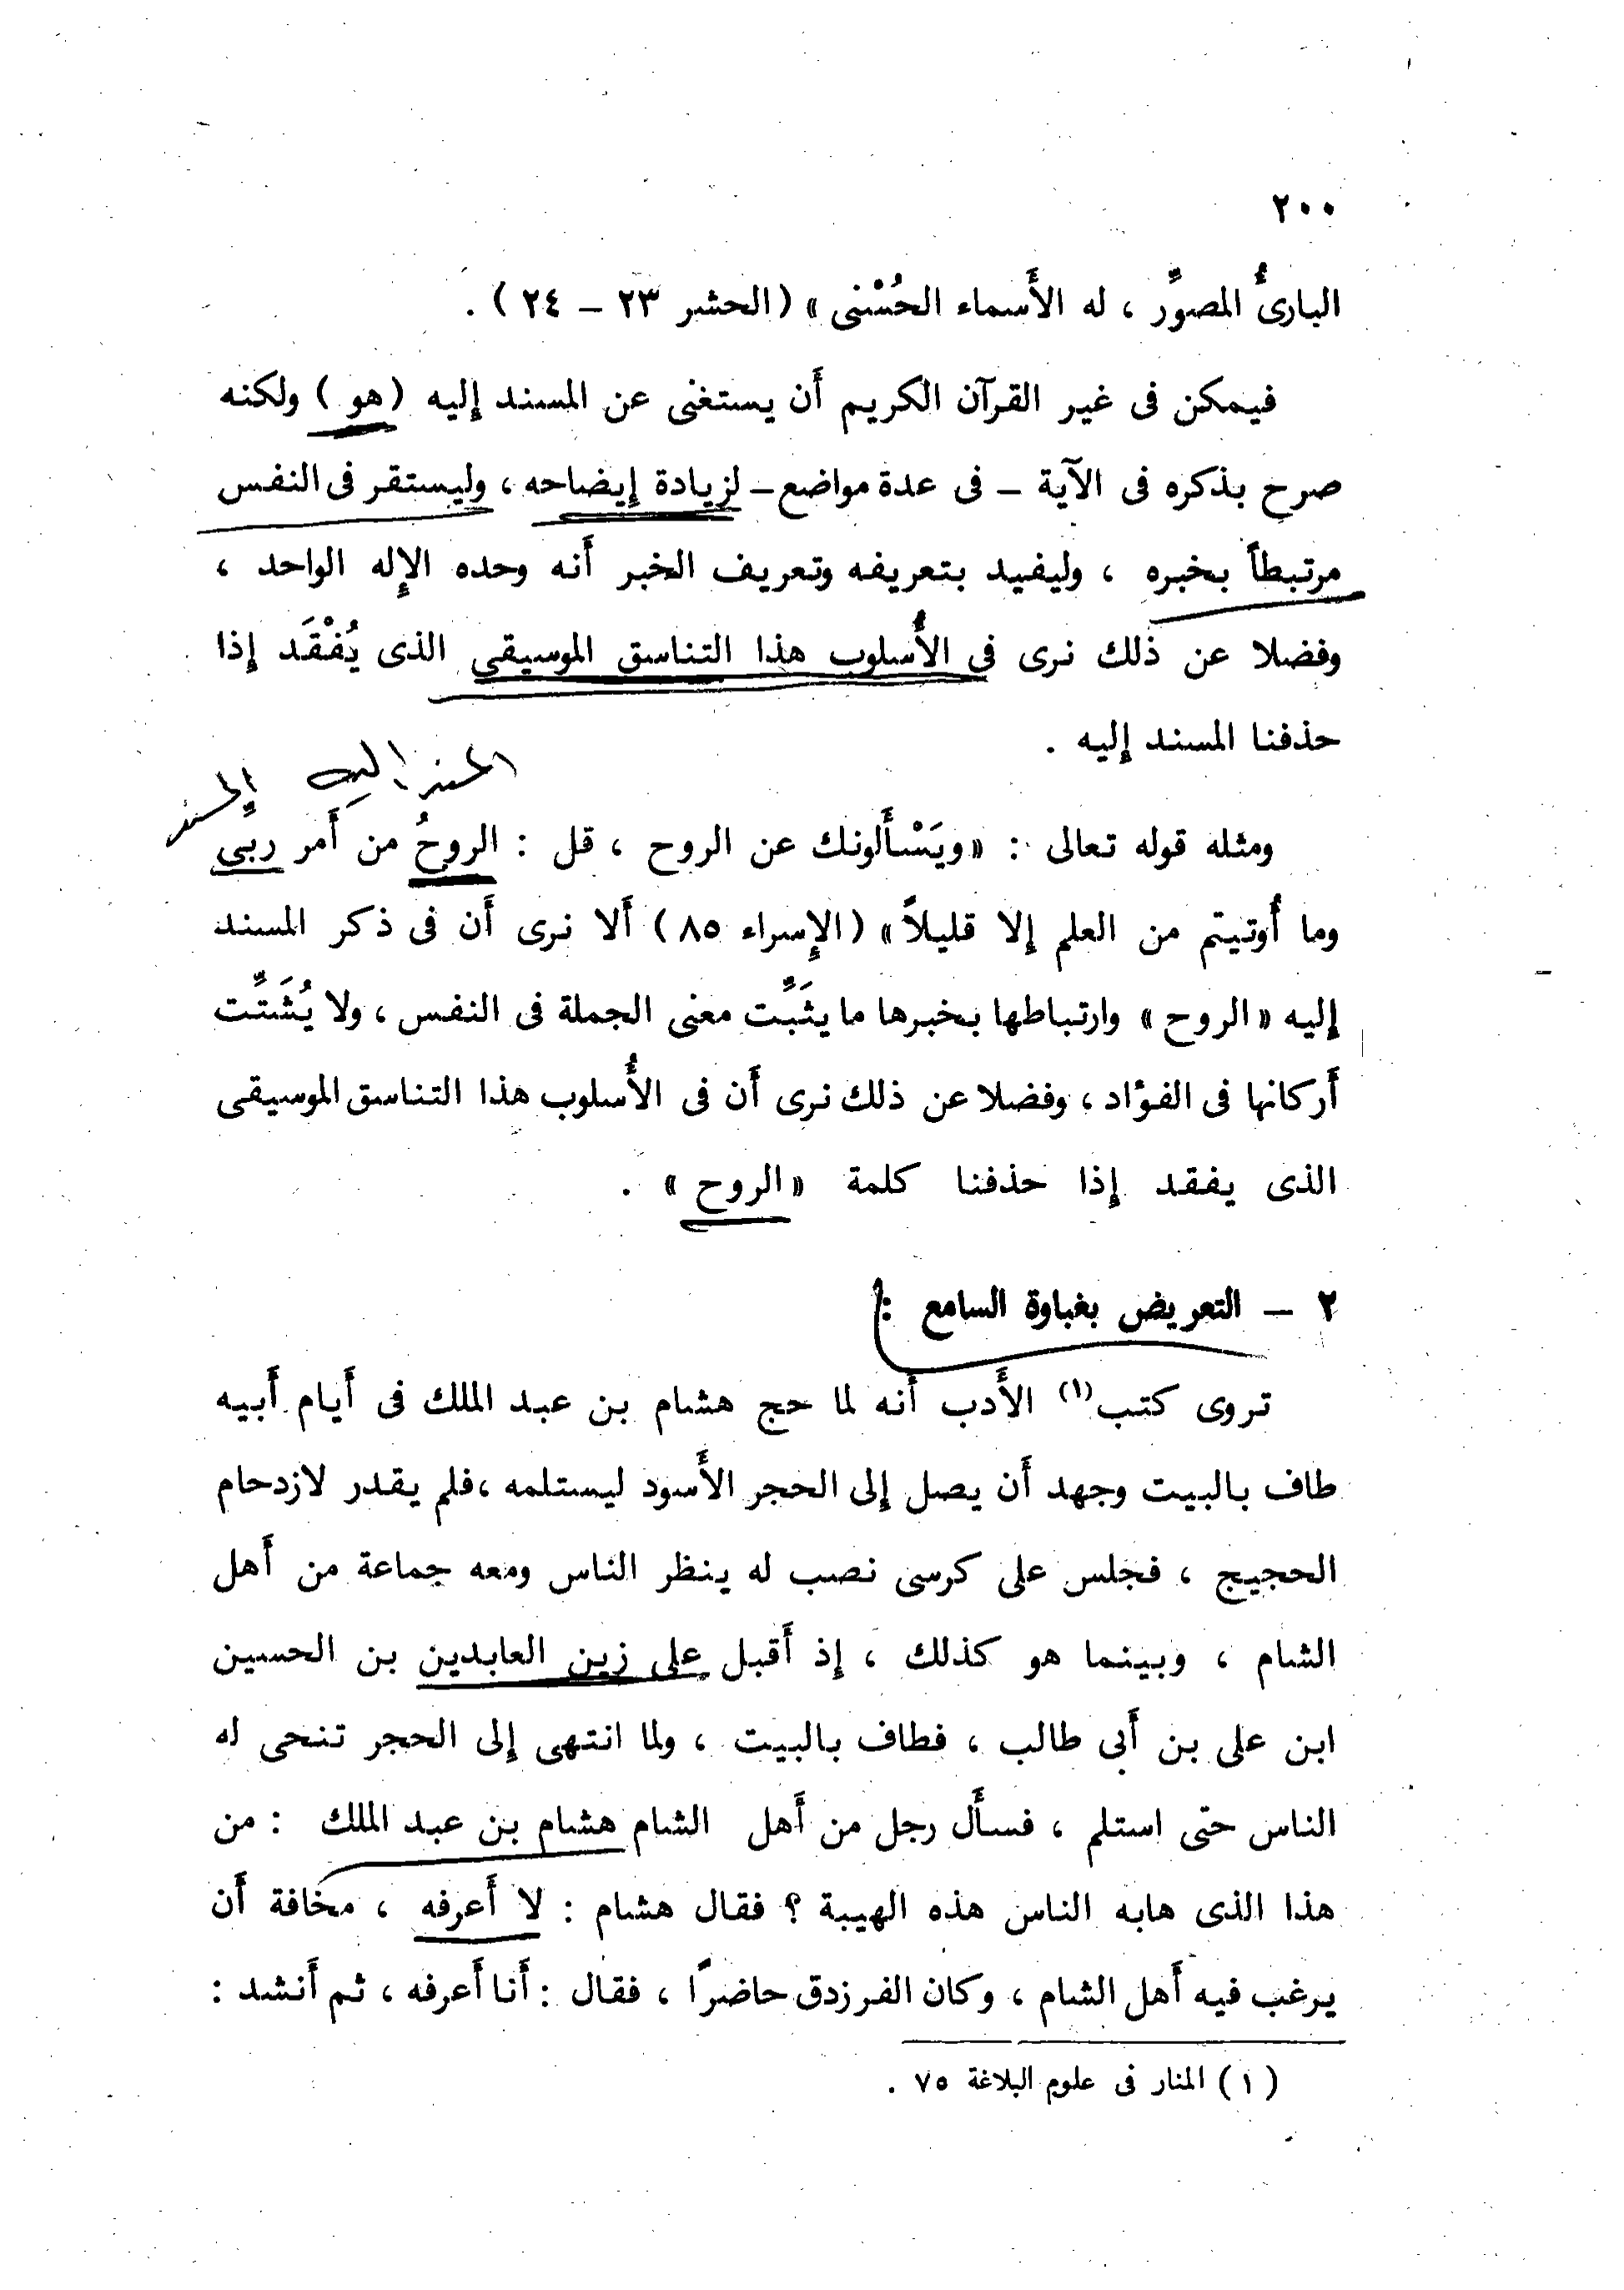 ٢٠٠
البارئُ المصوِّر ، له الأَسماء الحُسْنى » (الحشر ٢٣ – ٢٤) .
فيمكن فى غير القرآن الكريم أَن يستغنى عن المسند إليه (هو) ولكنه
صرح بذكره فى الآية – فى عدة مواضع – لزيادة إيضاحه ، وليستقر فى النفس
مرتبطاً بخبره ، وليفيد بتعريفه وتعريف الخبر أَنه وحده الإله الواحد ،
وفضلا عن ذلك نرى فى الأُسلوب هذا التناسق الموسيقى الذى يُفْقَد إذا
حذفنا المسند إليه .
المسند إليه المسند
ومثله قوله تعالى : «ويَسْأَلونك عن الروح ، قل : الروحُ من أَمر ربى
وما أُوتيتم من العلم إلا قليلاً» (الإسراء ٨٥) أَلا نرى أَن فى ذكر المسند
إليه «الروح» وارتباطها بخبرها ما يثَبِّت معنى الجملة فى النفس ، ولا يُشَتِّت
أَركانها فى الفؤاد ، وفضلا عن ذلك نرى أَن فى الأُسلوب هذا التناسق الموسيقى
الذى يفقد إذا حذفنا كلمة «الروح» .
٢ – التعريض بغباوة السامع :
تروى كتب(١) الأَدب أَنه لما حج هشام بن عبد الملك فى أَيام أَبيه
طاف بالبيت وجهد أَن يصل إلى الحجر الأَسود ليستلمه ، فلم يقدر لازدحام
الحجيج ، فجلس على كرسى نصب له ينظر الناس ومعه جماعة من أَهل
الشام ، وبينما هو كذلك ، إذ أَقبل على زين العابدين بن الحسين
ابن على بن أَبى طالب ، فطاف بالبيت ، ولما انتهى إلى الحجر تنحى له
الناس حتى استلم ، فسأَل رجل من أَهل الشام هشام بن عبد الملك : من
هذا الذى هابه الناس هذه الهيبة ؟ فقال هشام : لا أَعرفه ، مخافة أَن
يرغب فيه أَهل الشام ، وكان الفرزدق حاضرًا ، فقال : أَنا أَعرفه ، ثم أَنشد :
(١) المنار فى علوم البلاغة ٧٥ .